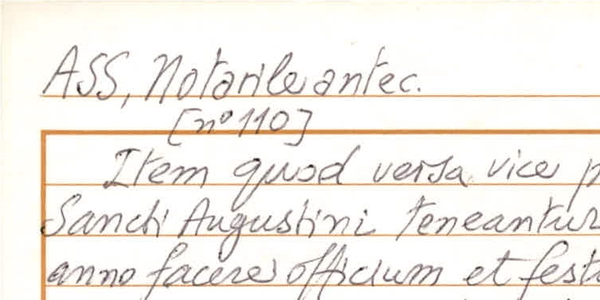 ASS, Notarile antec.
[nº 110]
Item quod versa vice
Sancti Augustini teneantur
anno facere officium et festu